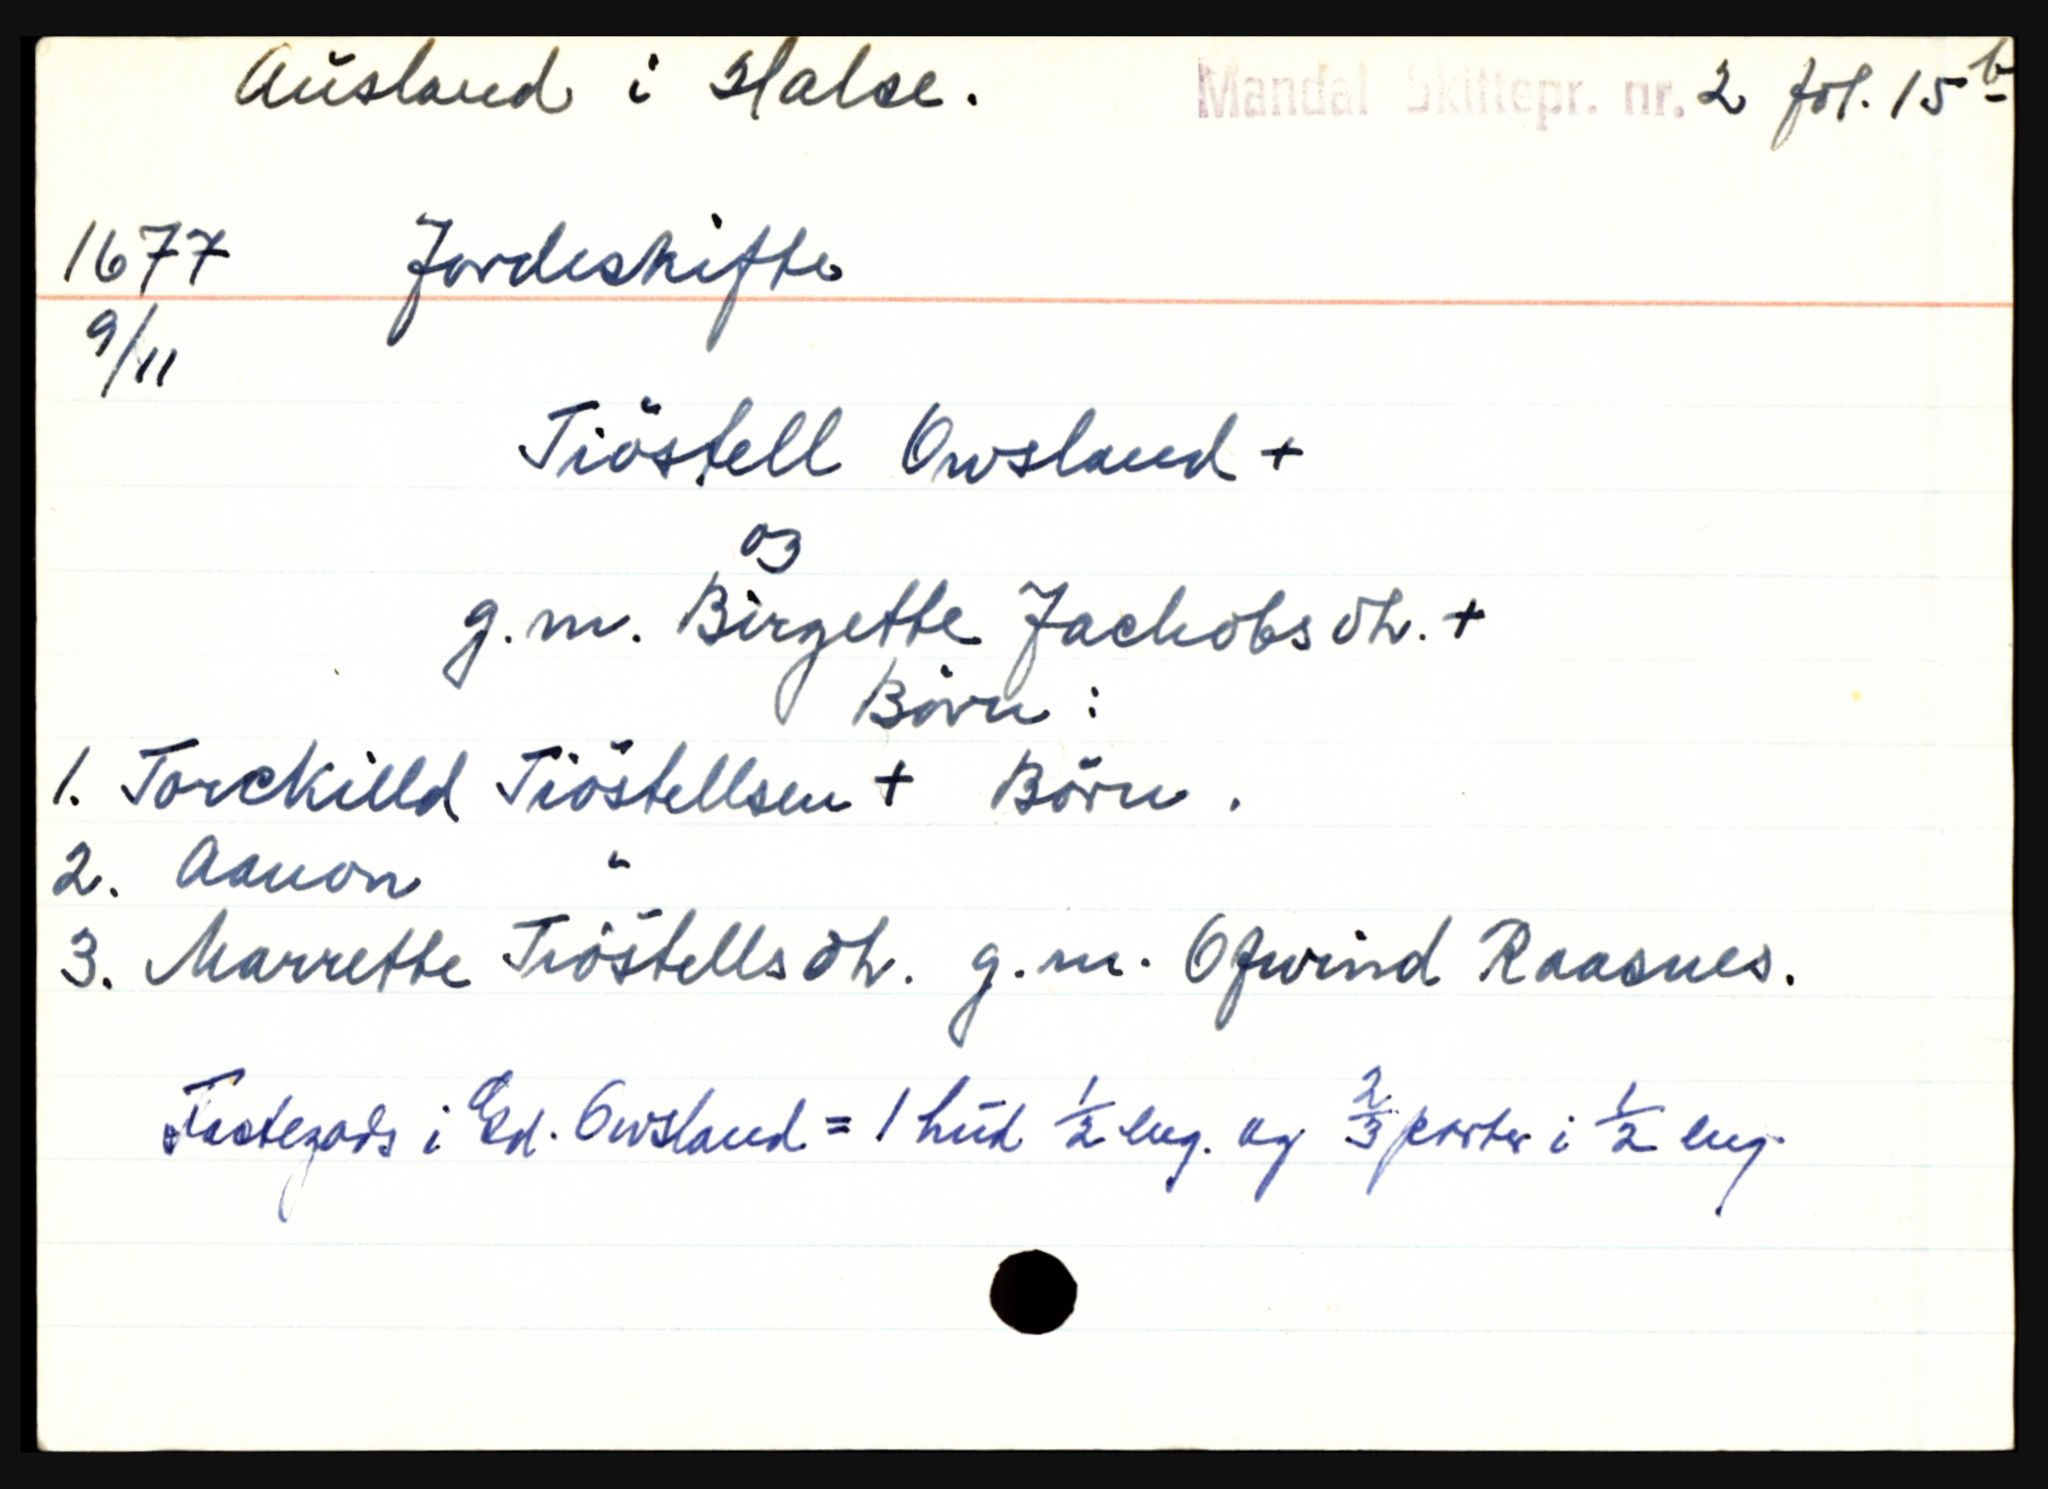 Ausland i Halse. Mandal Skiftepr. nr. 2 fol. 15 b
1677 Jordeskifte
9/11
Tiöstell Owsland +
og
g.m. Birgette Jachobsdtr. +
Börn :
1. Torckilld Tiöstellsen + Börn.
2. Aanon "
3. Marrette Tiöstellsdtr. g.m. Ofwind Raasnes.
Festegods i Gd. Owsland = 1 hud 1/2 eng. og 2/3 parter i 1/2 eng.